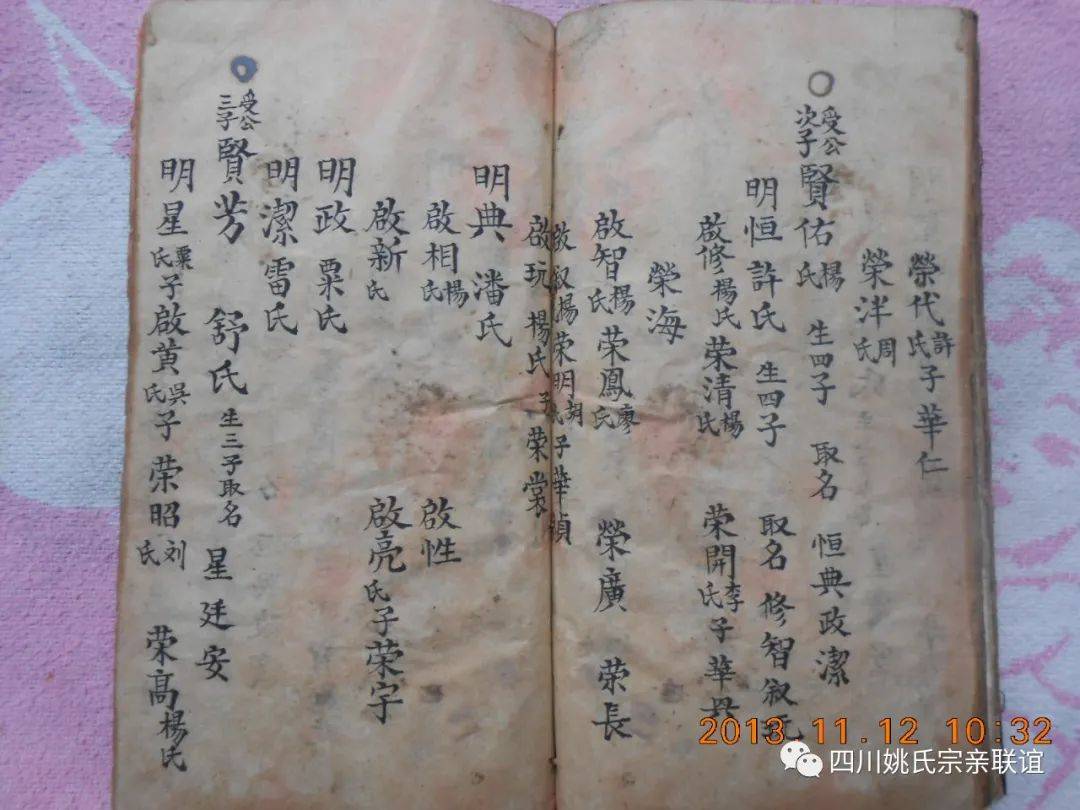 榮代許氏子華仁
榮洋周氏
受公次子賢佑楊氏 生四子 取名 恒典政潔
明恒許氏 生四子 取名修智溆玩
啟修楊氏榮清楊氏 荣開李氏子華
荣海
啟智楊氏荣鳳廖氏 榮廣 荣長
啟溆楊氏荣明胡氏子華禎
啟玩楊氏子荣裳
明典潘氏
啟相楊氏 啟性
啟新氏 啟亮氏子荣宇
明政粟氏
明潔雷氏
受公三子賢芳 舒氏生三子取名 星廷安
明星粟氏子啟黄吳氏子荣昭刘氏 荣高楊氏
2013.11.12 10:32
四川姚氏宗亲联谊